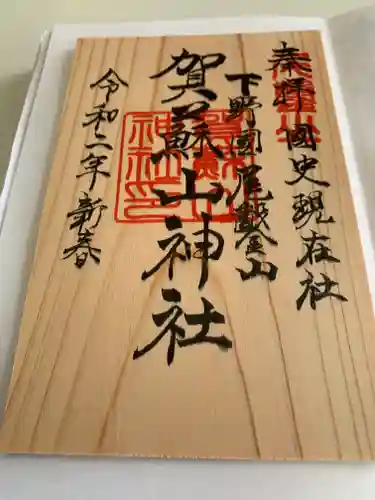 奉拝 國史現在社
下野國尾鑿山
賀蘇山神社
令和二年新春